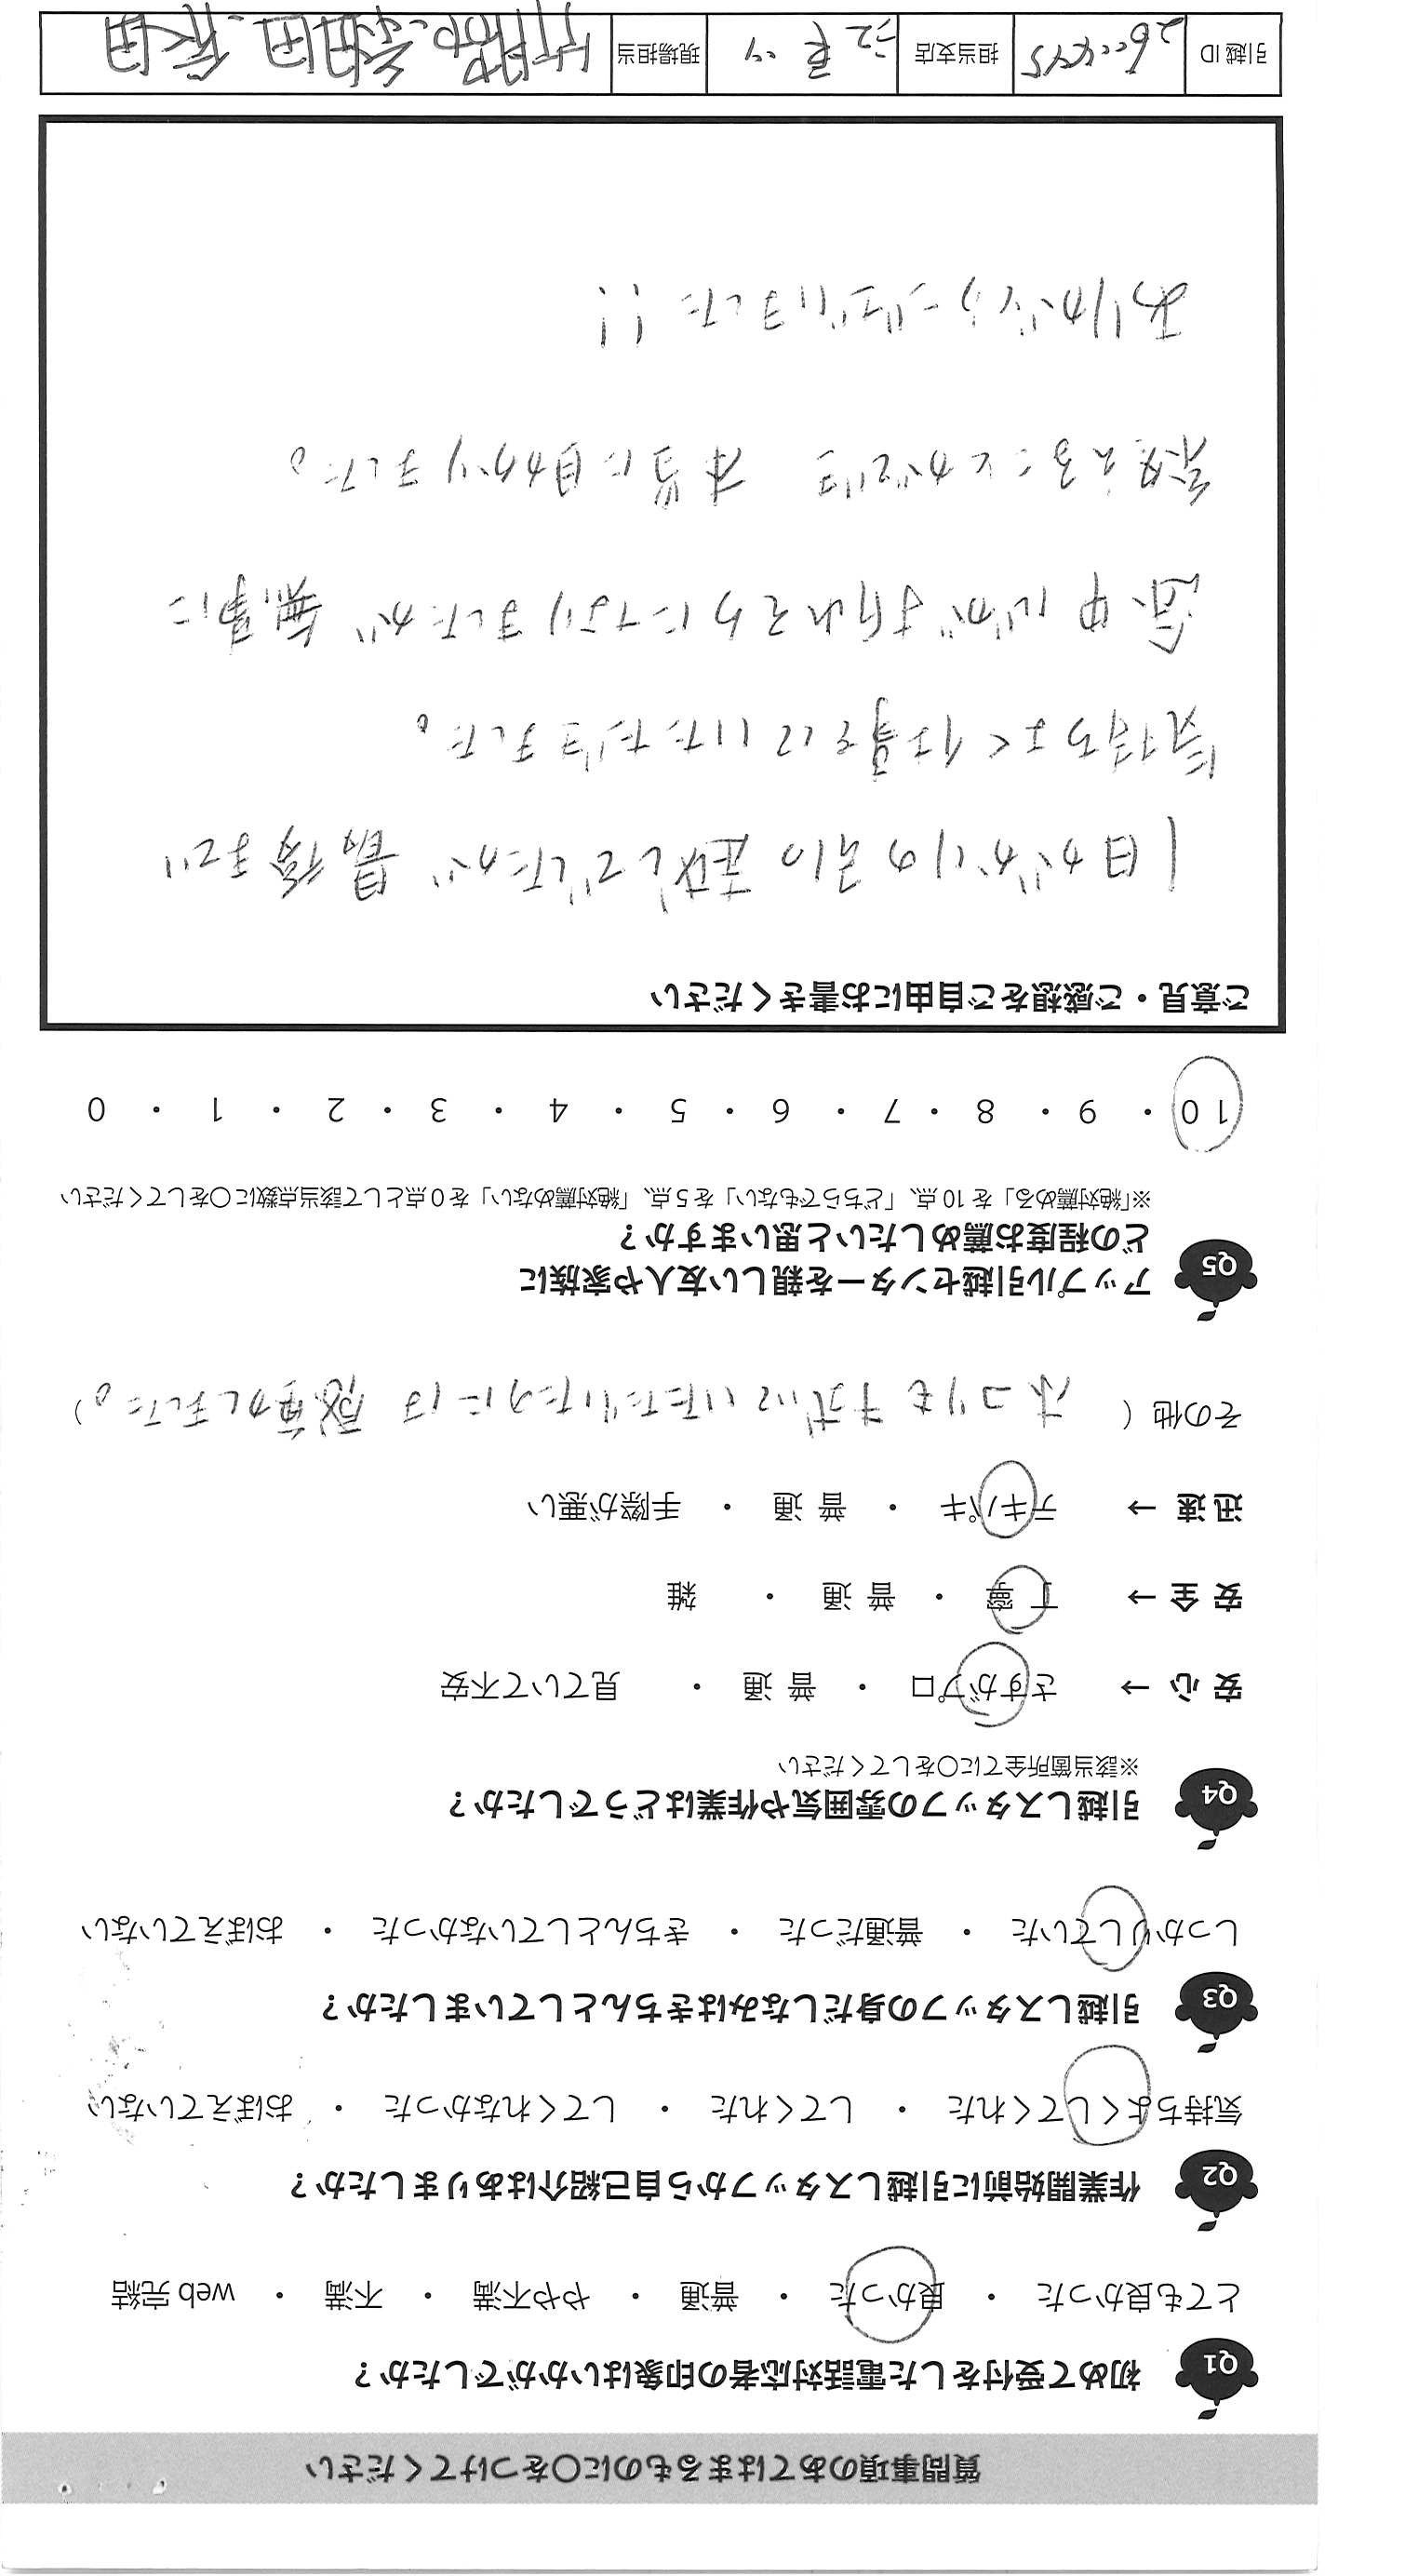 質問事項のあてはまるものに〇をつけてください
Q1 初めて受付をした電話対応者の印象はいかがでしたか？
とても良かった ・ 良かった ・ 普通 ・ やや不満 ・ 不満 ・ web 完結
Q2 作業開始前に引越しスタッフから自己紹介はありましたか？
気持ちよくしてくれた ・ してくれた ・ してくれなかった ・ おぼえていない
Q3 引越しスタッフの身だしなみはきちんとしていましたか？
しっかりしていた ・ 普通だった ・ きちんとしていなかった ・ おぼえていない
Q4 引越しスタッフの雰囲気や作業はどうでしたか？
※該当箇所全てに〇をしてください
安 心 → さすがプロ ・ 普 通 ・ 見ていて不安
安 全 → 丁 寧 ・ 普 通 ・ 雑
迅 速 → テキパキ ・ 普 通 ・ 手際が悪い
その他（ ホコリを拭いていただいたのには 感動しました。）
Q5 アップル引越センターを親しい友人や家族に
どの程度お薦めしたいと思いますか？
※「絶対薦める」を 10 点、「どちらでもない」を 5 点、「絶対薦めない」を 0 点として該当点数に〇をしてください
10 ・ 9 ・ 8 ・ 7 ・ 6 ・ 5 ・ 4 ・ 3 ・ 2 ・ 1 ・ 0
ご意見・ご感想をご自由にお書きください
1日がかりの引っ越しでしたが 最後まで
気持ちよく仕事をしていただきました。
途中心が折れそうになりましたが 無事に
終えることができ 本当に助かりました。
ありがとうございました！！
引越 ID 担当支店 現場担当